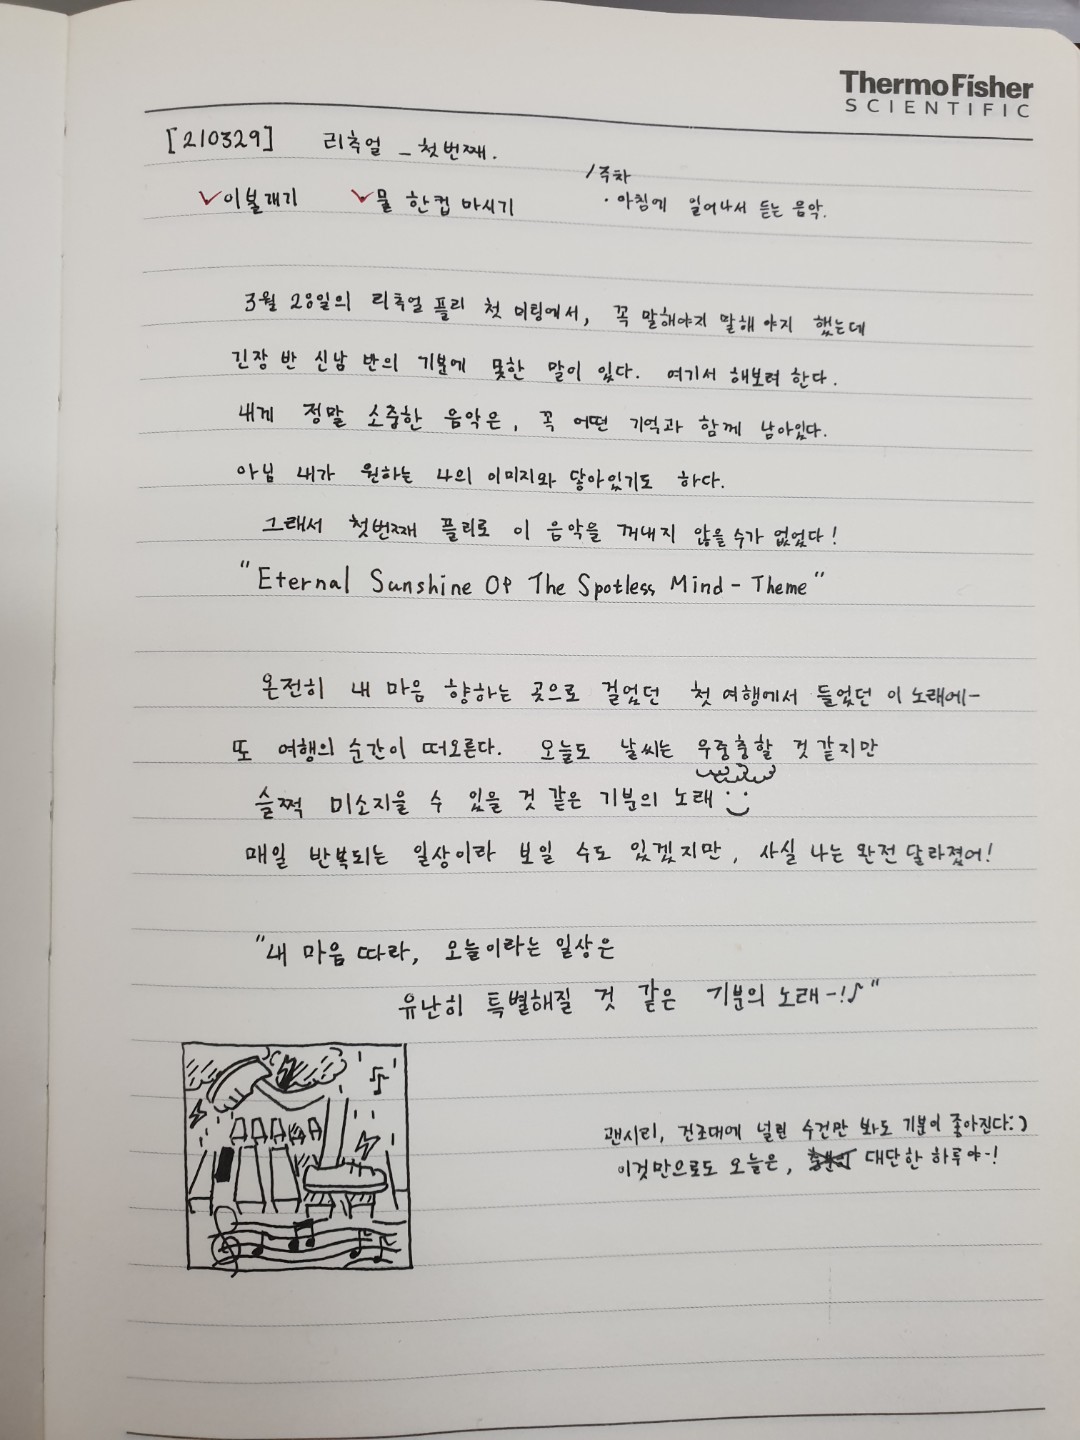 ThermoFisher
SCIENTIFIC
[210329] 리추얼 _ 첫번째.
1주차
이불개기 물 한컵 마시기
· 아침에 일어나서 듣는 음악.
3월 28일의 리추얼 플리 첫 미팅에서, 꼭 말해야지 말해 야지 했는데
긴장 반 신남 반의 기분에 못한 말이 있다. 여기서 해보려 한다.
내게 정말 소중한 음악은, 꼭 어떤 기억과 함께 남아있다.
아님 내가 원하는 나의 이미지와 닿아있기도 하다.
그래서 첫번째 플리로 이 음악을 꺼내지 않을 수가 없었다!
"Eternal Sunshine Of The Spotless Mind - Theme"
온전히 내 마음 향하는 곳으로 걸었던 첫 여행에서 들었던 이 노래에-
또 여행의 순간이 떠오른다. 오늘도 날씨는 우중충할 것 같지만
슬쩍 미소지을 수 있을 것 같은 기분의 노래
매일 반복되는 일상이라 보일 수도 있겠지만, 사실 나는 완전 달라졌어!
"내 마음 따라, 오늘이라는 일상은
유난히 특별해질 것 같은 기분의 노래-!♪"
괜시리, 건조대에 널린 수건만 봐도 기분이 좋아진다:)
이것만으로도 오늘은, 대단한 하루야-!